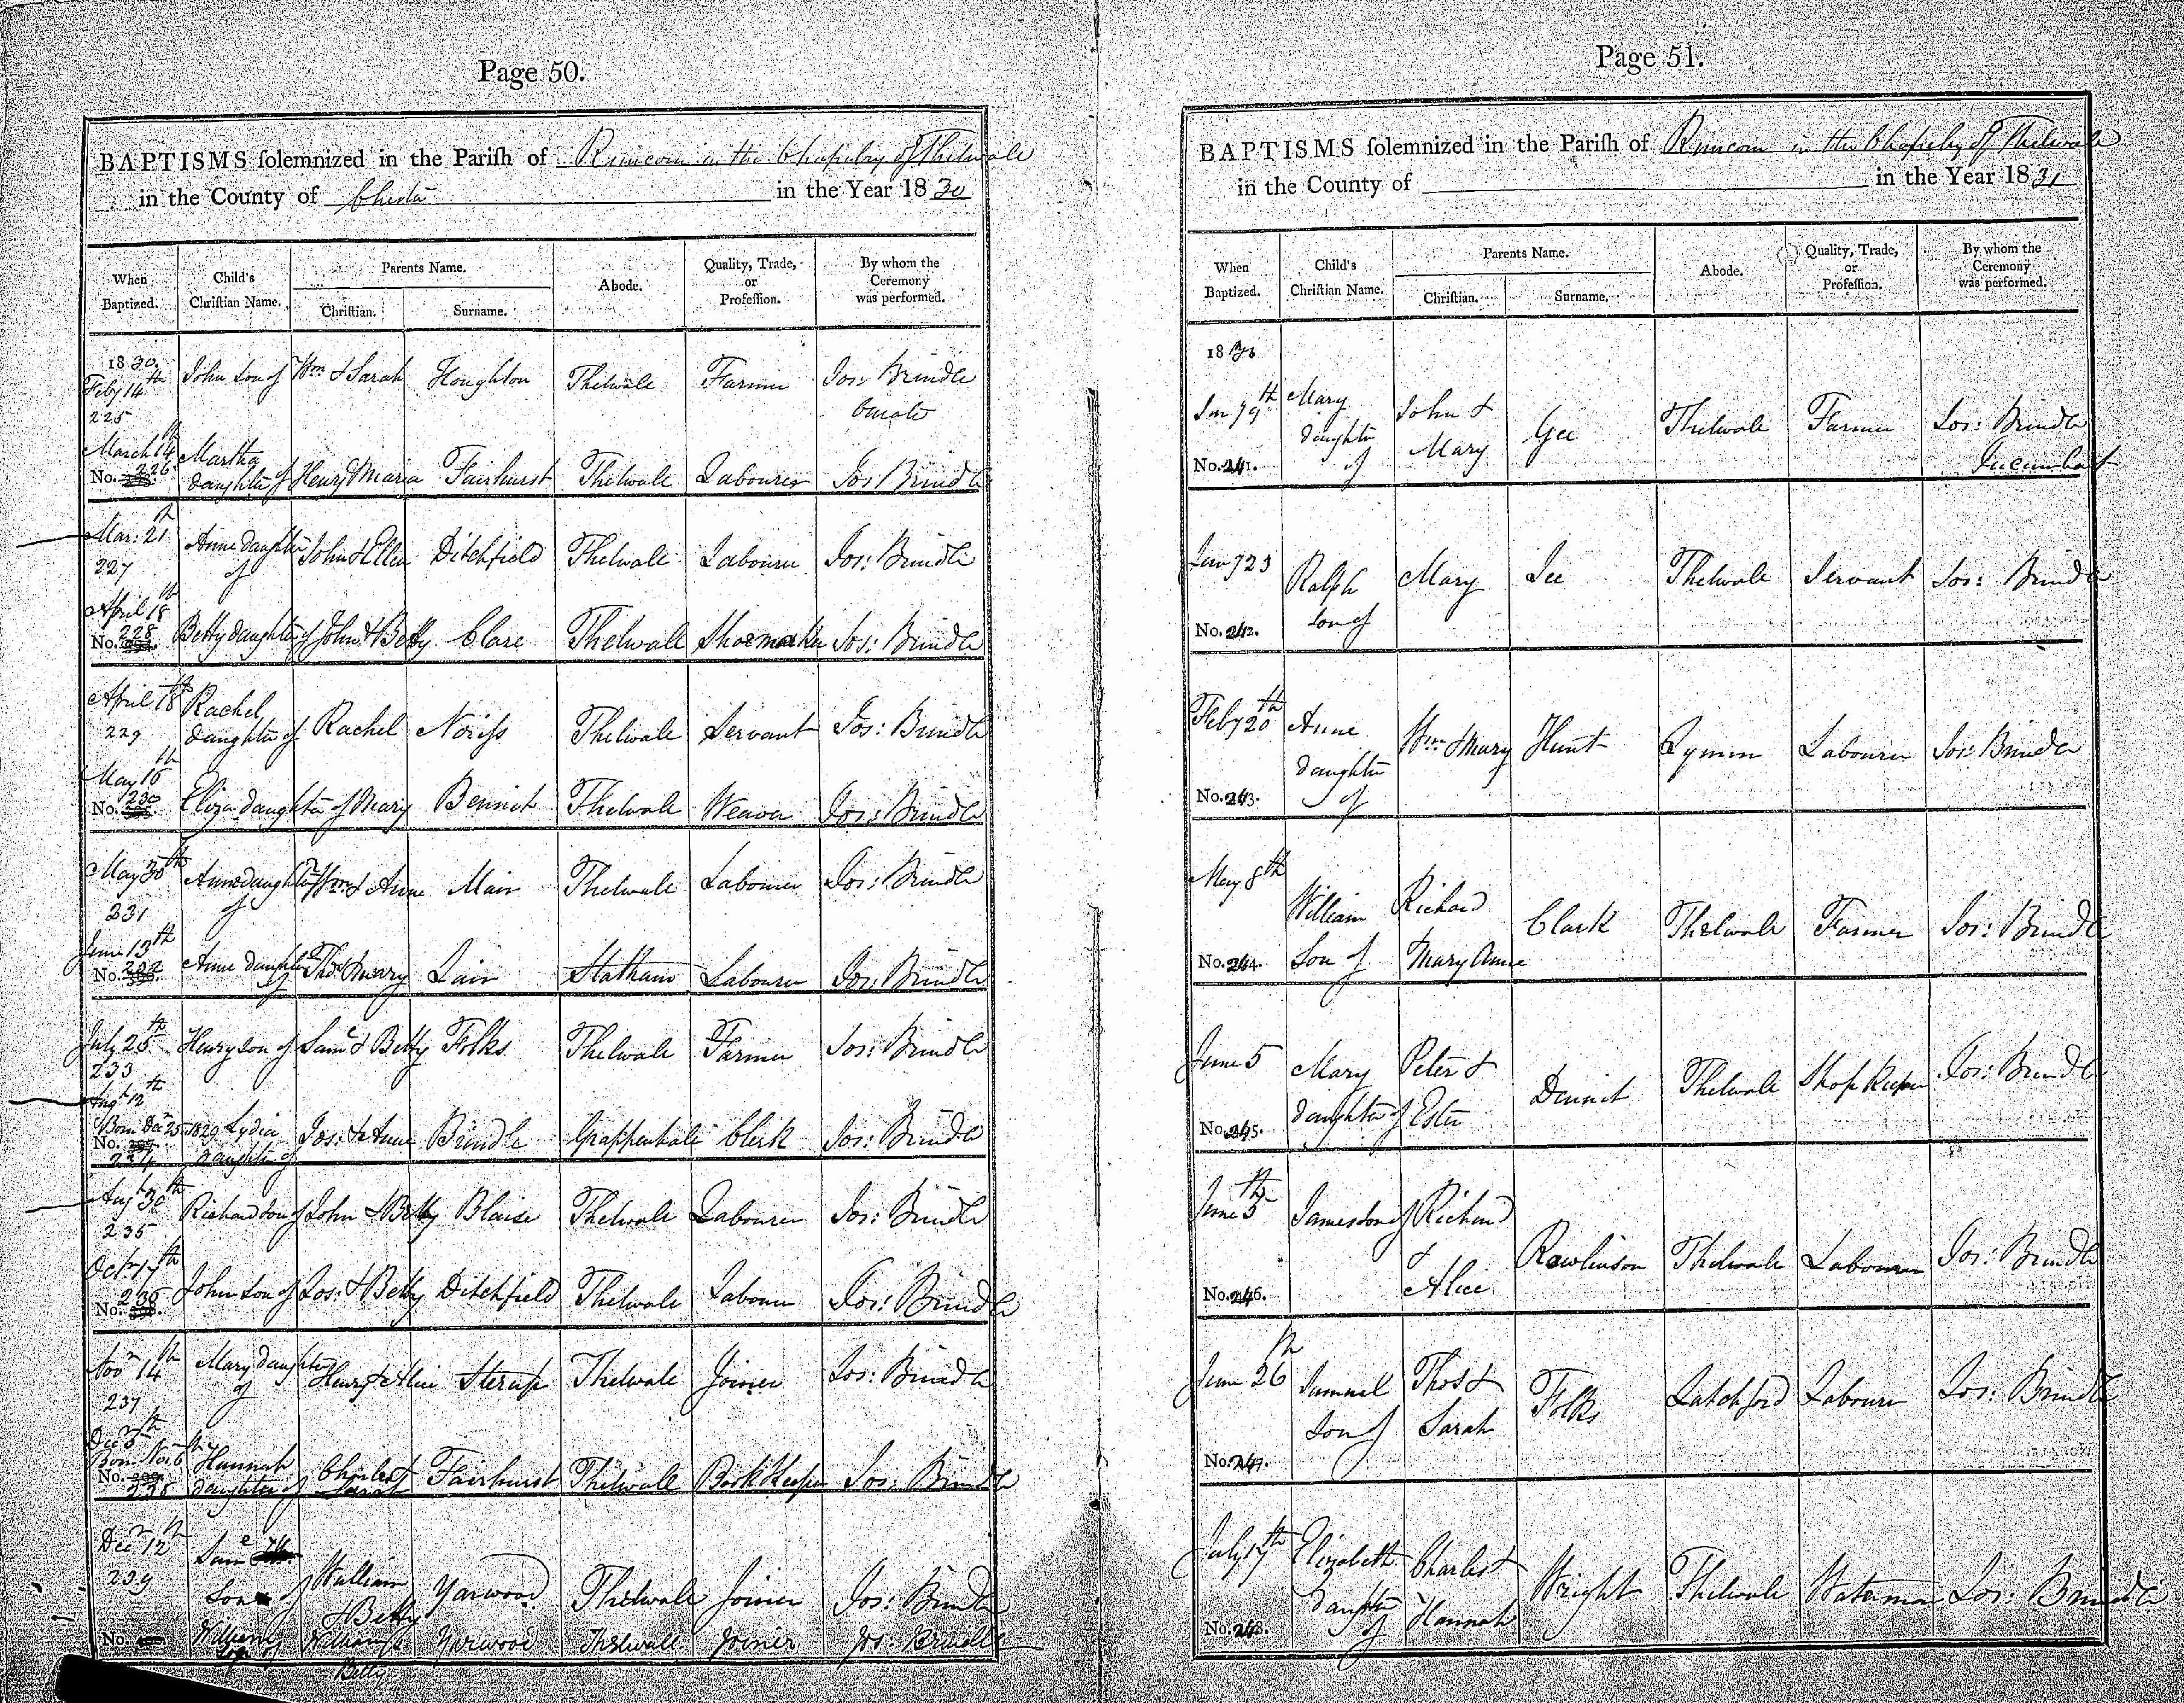 Page 50.
BAPTISMS ſolemnized in the Pariſh of Runcorn in the Chapelry of Thelwale
in the County of Chester in the Year 1830
When Baptized. Child's Chriſtian Name. Parents Name. Chriſtian. Surname. Abode. Quality, Trade, or Profeſſion. By whom the Ceremony was performed.
1830.
Feby 14th John son of Wm & Sarah Houghton Thelwale Farmer Jos: Brindle
225 Curate
March 14th Martha
No. 226 daughter of Henry Maria Fairhurst Thelwale Labourer Jos Brindle
Mar: 21st Anne daughter of John & Ellen Ditchfield Thelwale Labourer Jos: Brindle
227
April 18th
No. 228 Betty daughter of John & Betty Clare Thelwall Shoemaker Jos: Brindle
April 18th Rachel
229 daughter of Rachel Noriss Thelwale Servant Jos: Brindle
May 16th
No. 230 Eliza daughter of Mary Bennet Thelwale Weaver Jos: Brindle
May 30th Anne daughter of Wm & Anne Mair Thelwale Labourer Jos: Brindle
231
June 13th
No. 232 Anne daughter of Thos & Mary Lain Statham Labourer Jos: Brindle
July 25th Henry son of Saml & Betty Folks Thelwale Farmer Jos: Brindle
233
Augt 12th
Born Decr 25 1829 Lydia
No. 234 daughter of Jos: & Anne Brindle Grappenhale Clerk Jos: Brindle
Augt 30th Richard son of John & Betty Blaise Thelwale Labourer Jos: Brindle
235
Octr 17th
No. 236 John son of Jos: & Betty Ditchfield Thelwale Labourer Jos: Brindle
Novr 14th Mary daughter of Henry & Alice Sterup Thelwale Joiner Jos: Brindle
237
Decr 5th
Born Nov 6th Hannah
No. 238 daughter of Charles & Sarah Fairhurst Thelwale Book Keeper Jos: Brindle
Decr 12th Saml
239 Son of William & Betty Yarwood Thelwale Joiner Jos: Brindle
No. William son of William & Betty Yarwood Thelwall Joiner Jos: Brindle
Page 51.
BAPTISMS ſolemnized in the Pariſh of Runcorn in the Chapelry of Thelwale
in the County of in the Year 1831
When Baptized. Child's Chriſtian Name. Parents Name. Chriſtian. Surname. Abode. Quality, Trade, or Profeſſion. By whom the Ceremony was performed.
1831
Mary daughter of John & Mary Gee Thelwale Farmer Jos: Brindle
No. 241. Incumbent
Jany 23 Ralph son of Mary Lee Thelwale Servant Jos: Brindle
No. 242.
Feby 20th Anne daughter of Wm & Mary Hunt Lymm Labourer Jos: Brindle
No. 243.
May 8th William Son of Richard & Mary Anne Clark Thelwale Farmer Jos: Brindle
No. 244.
June 5 Mary daughter of Peter & Ester Dennet Thelwale Shop Keeper Jos: Brindle
No. 245.
June 5th James son of Richard & Alice Rawlinson Thelwale Labourer Jos: Brindle
No. 246.
June 26th Samuel Son of Thos & Sarah Folks Latchford Labourer Jos: Brindle
No. 247.
July 17th Elizabeth daughter of Charles & Hannah Wright Thelwale Waterman Jos: Brindle
No. 248.